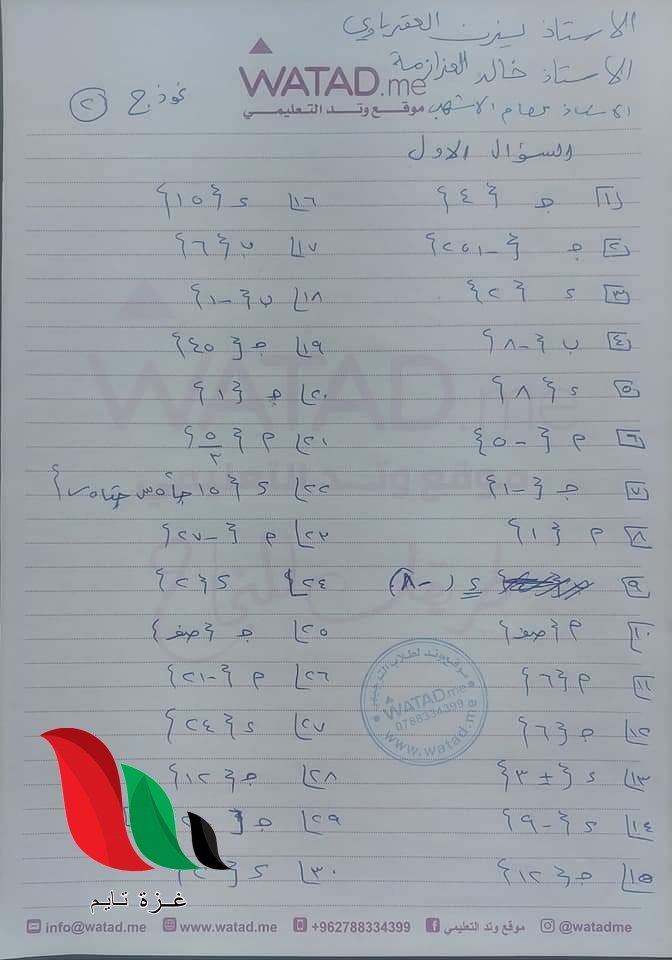 الاستاذ يزن العقرباوي
الاستاذ خالد العزازمة
WATAD.me
موقع وتد التعليمي
نموذج (٢)
السؤال الاول
١ ج {٤}
١٦ د {١٥}
٢ ج {-٢٥١}
١٧ ب {٦}
٣ د {٢}
١٨ ب {-١}
٤ ب {-٨}
١٩ ج {٤٥}
٥ د {٨}
٢٠ ج {١}
٦ م {-٥}
٢١ م {٥/٣}
٧ ج {-١}
٢٢ د {١٥ جا٥س جتا٥س}
٨ م {١}
٢٣ م {-٢٧}
٩ د (-٨)
٢٤ د {٢}
١٠ م {صفر}
٢٥ ج {صفر}
١١ م {٦}
٢٦ م {-٢١}
١٢ ج {٦}
٢٧ د {٢٤}
١٣ د {± ٣}
٢٨ ج {١٢}
١٤ د {-٩}
٢٩ ج
١٥ ج {١٢}
٣٠ د {٢}
موقع وتد لطلاب التوجيهي
WATAD.me
0788334399
www.watad.me
غزة تايم
info@watad.me www.watad.me +962788334399 موقع وتد التعليمي @watadme